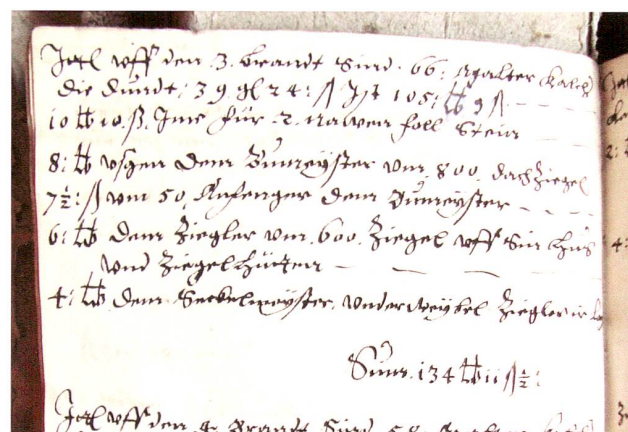 Jtel vff den 3. brandt Sind. 66: Malter Kalch
die dundt: 39 gl 24: ß Jst 105: ℔ 9 ß
10 ℔ 10. ß. Jme für 2. nawen foll Stein
8: ℔ vsgen dem Bumeyster vm. 800. dachziegel
7½: ß vm 50. Anfenger dem Bumeyster
6: ℔ dem Ziegler vm. 600. Ziegel vff Sin hus
vnd Ziegelhütten
4: ℔ dem. Seckelmeyster. vnderweybel Ziegler
Sum. 134 ℔ 11 ß ½:
Jtel vff den 4. Brandt Sind 58